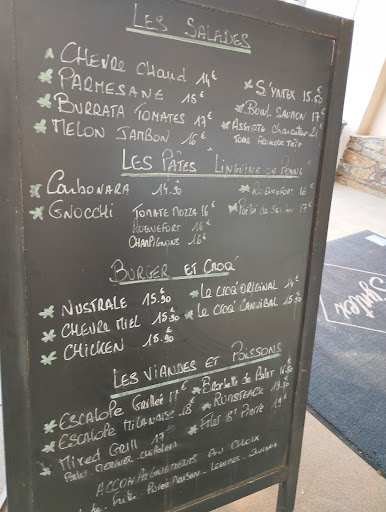 LES SALADES
CHEVRE CHAUD 14€
PARMESANE 15€
BURRATA TOMATES 17€
MELON JAMBON 16€
S'YNTEX 15.50
BOWL SAUMON 17€
ASSIETTE CHARCUTERIE
TOME
LES PÂTES LINGUINE OU PENNE
CARBONARA 14.90
GNOCCHI TOMATE MOZZA 16€
ROQUEFORT 16€
CHAMPIGNONS 16€
ROQUEFORT 16€
17€
BURGER ET CROQ'
NUSTRALE 15.90€
CHEVRE MIEL 15.90€
CHICKEN 15.90€
LE CROQ' ORIGINAL 14€
LE CROQ' CANNIBAL 15.90
LES VIANDES ET POISSONS
ESCALOPE GRILLÉE 17€
ESCALOPE MILANAISE 18€
MIXED GRILL 17
POULET MERGUEZ CHIPOLATA
BROCHETTE DE POULET 16.90
RUMSTEACK 19.90
FILET ST PIERRE 19€
ACCOMPAGNEMENTS AU CHOIX
FRITE PURÉE MAISON LEGUMES
Syntex